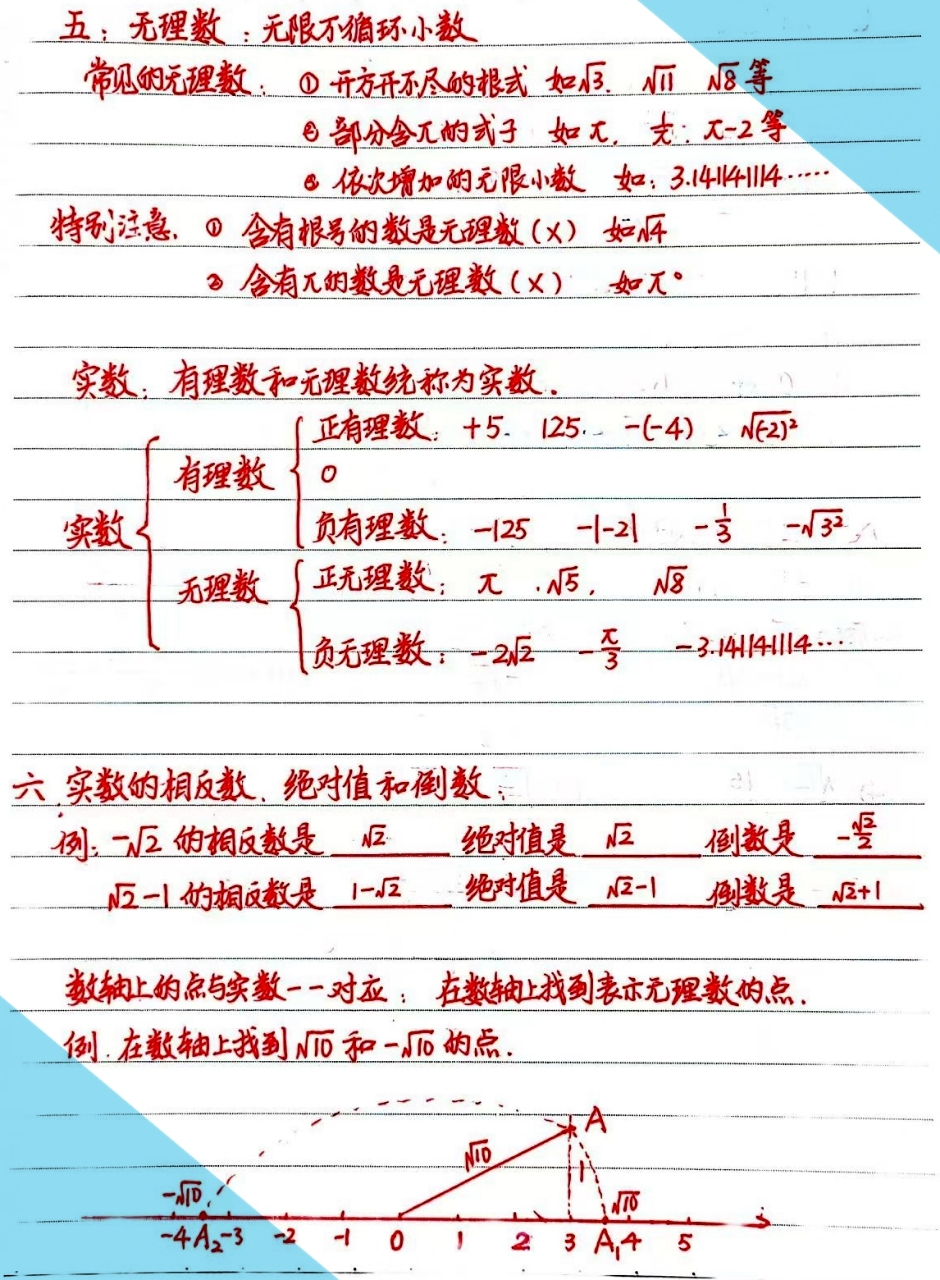 五：无理数：无限不循环小数
常见的无理数：① 开方开不尽的根式 如√3. √11 √8等
② 部分含π的式子 如π, 1/π: π-2等
③ 依次增加的无限小数 如：3.141141114……
特别注意. ① 含有根号的数是无理数(×) 如√4
② 含有π的数是无理数(×) 如π°
实数：有理数和无理数统称为实数.
正有理数：+5. 125. -(-4) √(-2)²
有理数
0
实数
负有理数：-125 -|-2| -1/3 -√3²
无理数
正无理数：π .√5. √8
负无理数：-2√2 -π/3 -3.141141114…
六.实数的相反数、绝对值和倒数：
例：-√2 的相反数是 √2 绝对值是 √2 倒数是 -√2/2
√2-1 的相反数是 1-√2 绝对值是 √2-1 倒数是 √2+1
数轴上的点与实数一一对应：在数轴上找到表示无理数的点.
例.在数轴上找到√10 和 -√10 的点.
A
√10
1
-√10 √10
-4 A₂ -3 -2 -1 0 1 2 3 A₁ 4 5